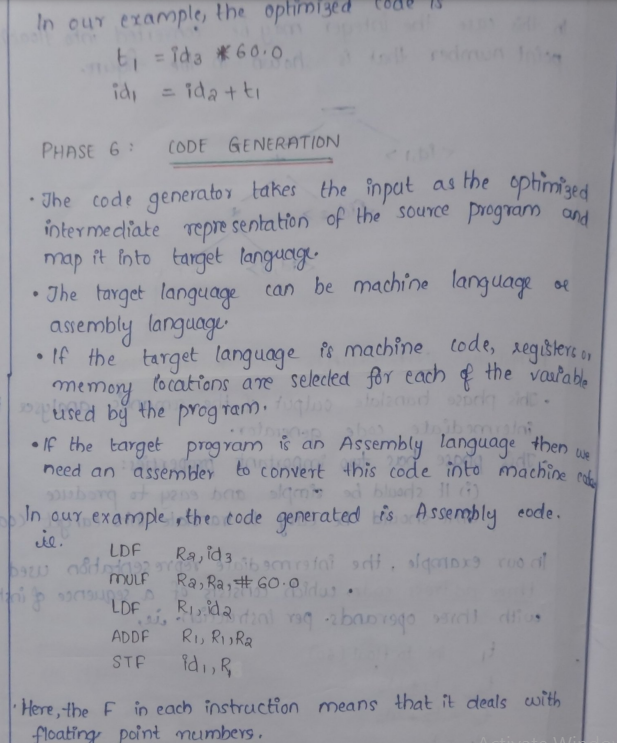 In our example, the optimized code is
t1 = id3 * 60.0
id1 = id2 + t1
PHASE 6 : CODE GENERATION
• The code generator takes the input as the optimized
intermediate representation of the source program and
map it into target language.
• The target language can be machine language or
assembly language.
• If the target language is machine code, registers or
memory locations are selected for each of the variable
used by the program.
• If the target program is an Assembly language then we
need an assember to convert this code into machine code
In our example, the code generated is Assembly code.
ie.
LDF R2, id3
MULF R2, R2, #60.0
LDF R1, id2
ADDF R1, R1, R2
STF id1, R1
• Here, the F in each instruction means that it deals with
floating point numbers.